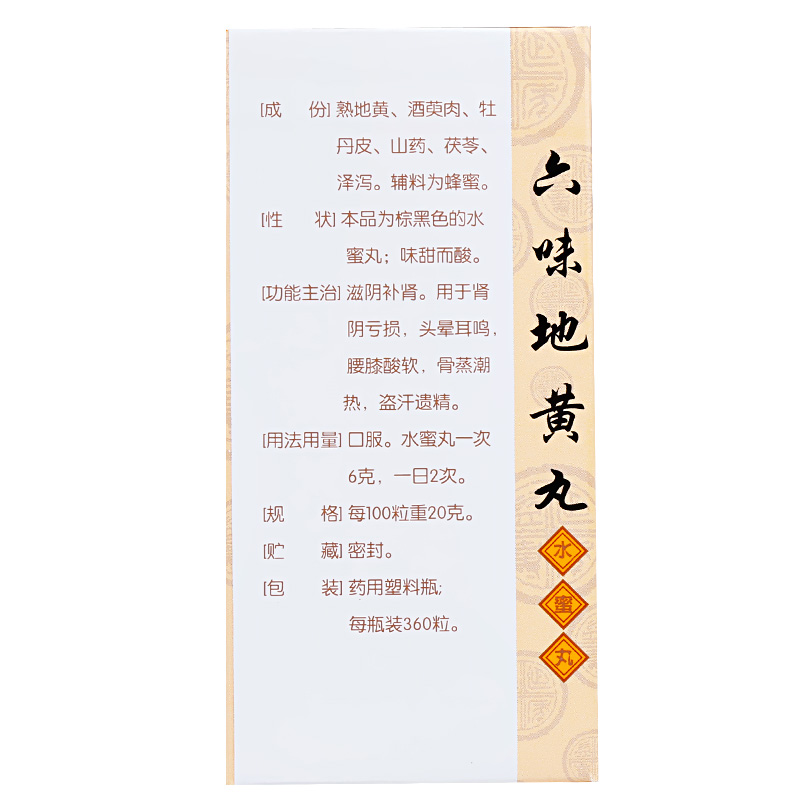 [成 份] 熟地黄、酒萸肉、牡
丹皮、山药、茯苓、
泽泻。辅料为蜂蜜。
[性 状] 本品为棕黑色的水
蜜丸；味甜而酸。
[功能主治] 滋阴补肾。用于肾
阴亏损，头晕耳鸣，
腰膝酸软，骨蒸潮
热，盗汗遗精。
[用法用量] 口服。水蜜丸一次
6克，一日2次。
[规 格] 每100粒重20克。
[贮 藏] 密封。
[包 装] 药用塑料瓶;
每瓶装360粒。
六味地黄丸
水蜜丸